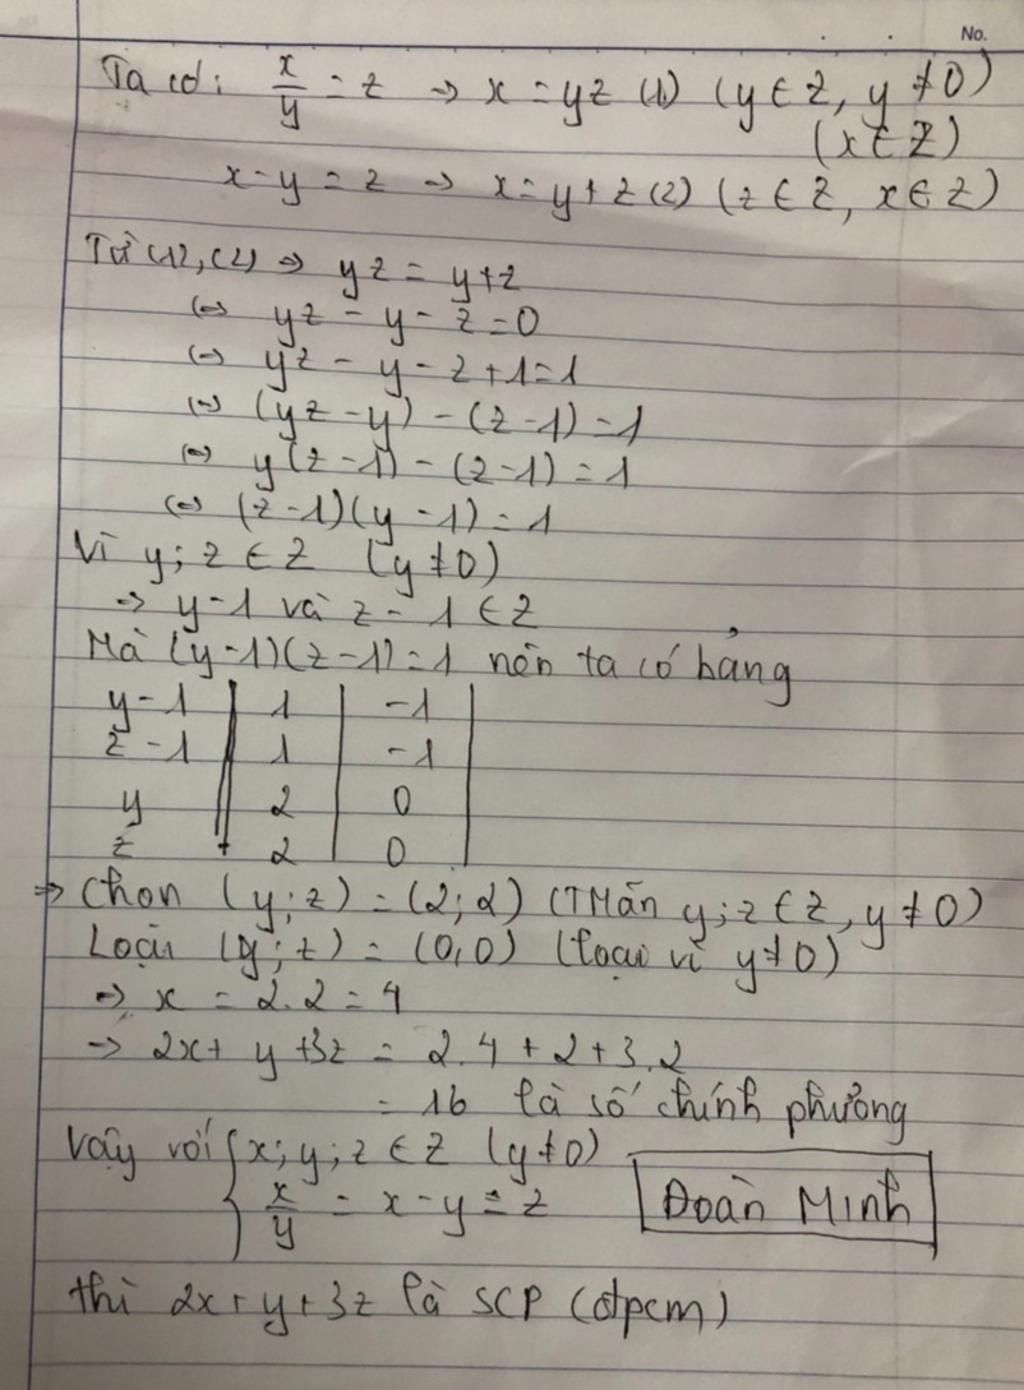 No.
Ta có: x/y = z → x = yz (1) (y ∈ Z, y ≠ 0)
(x ∈ Z)
x - y = z → x = y + z (2) (z ∈ Z, x ∈ Z)
Từ (1), (2) ⇒ yz = y + z
⇔ yz - y - z = 0
⇔ yz - y - z + 1 = 1
⇔ (yz - y) - (z - 1) = 1
⇔ y(z - 1) - (z - 1) = 1
⇔ (z - 1)(y - 1) = 1
Vì y; z ∈ Z (y ≠ 0)
⇒ y - 1 và z - 1 ∈ Z
Mà (y - 1)(z - 1) = 1 nên ta có bảng
y - 1 | 1 | -1
z - 1 | 1 | -1
y | 2 | 0
z | 2 | 0
⇒ Chọn (y; z) = (2; 2) (TMãn y; z ∈ Z, y ≠ 0)
Loại (y; z) = (0, 0) (loại vì y ≠ 0)
⇒ x = 2.2 = 4
→ 2x + y + 3z = 2.4 + 2 + 3.2
= 16 là số chính phương
Vậy với { x; y; z ∈ Z (y ≠ 0)
x/y = x - y = z
Đoàn Minh
thì 2x + y + 3z là SCP (đpcm)